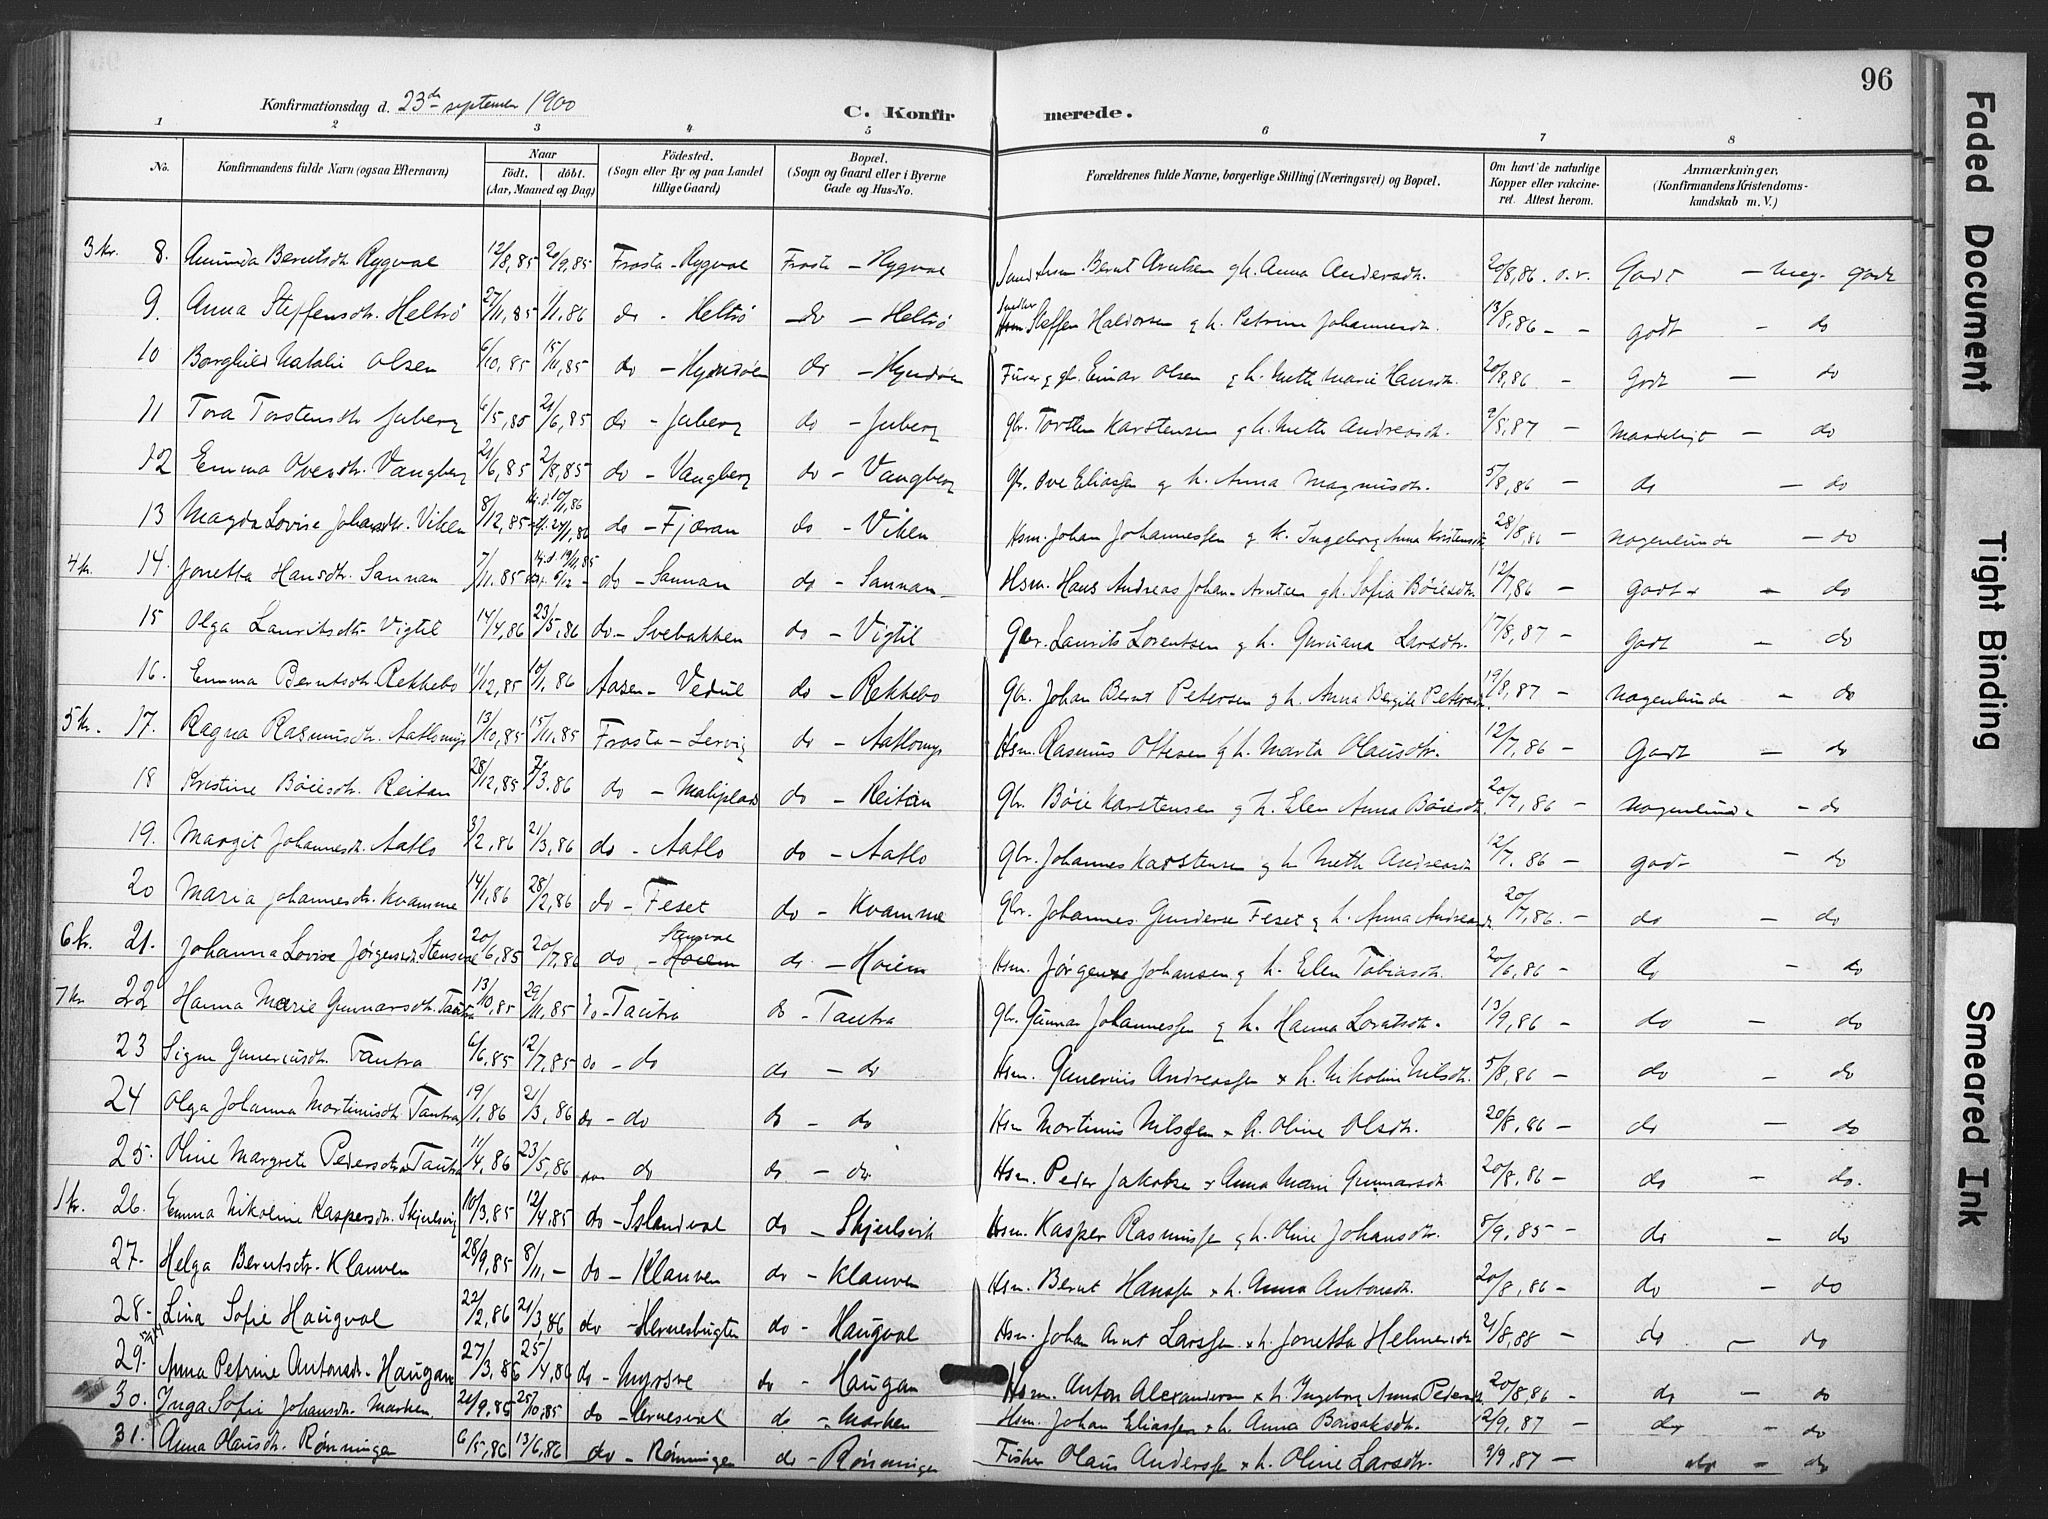 96
Konfirmationsdag d. 23de september 1900
C. Konfirmerede.
1 2 3 4 5 6 7 8
No. Konfirmandens fulde Navn (ogsaa Efternavn) Naar Födt. döbt. (Aar, Maaned og Dag) Födested. (Sogn eller By og paa Landet tillige Gaard) Bopæl. (Sogn og Gaard eller i Byerne Gade og Hus-No. Forældrenes fulde Navne, borgerlige Stilling (Næringsvei) og Bopæl. Om havt de naturlige Kopper eller vakcineret. Attest herom. Anmærkninger, (Konfirmandens Kristendomskundskab m. V.)
3 kr. 8. Amunda Berntsdtr. Rygvol 12/8,85 20/9,85 Frosta - Rygvol Frosta - Rygvol Bernt Arntsen gh. Anna Andersdtr. 20/8,86 Godt - meg. godt
9. Anna Steffensdtr. Heltrö 27/11,85 1/11,86 do - Heltrö do - Heltrö Steffen Haldorsen g h. Petrine Johannesdtr. 13/8,86 - - godt - do
10 Borghild Natalie Olsen 6/10,85 15/11,85 do - Hyndöen do - Hyndöen Einar Olsen g h. Mette Marie Hansdtr. 20/8,86 - Godt - do
11 Tora Torstensdtr Juberg 6/5,85 21/6,85 do - Juberg do - Juberg Gbr. Torsten Karstensen g h. Mette Andreasdtr. 9/8,87 - Maadeligt - do
12 Emma Ovesdtr. Vangberg 21/6,85 2/8,85 do - Vangberg do - Vangberg Gbr. Ove Eliassen g h. Anna Magnusdtr. 5/8,86 - do - do
13 Magda Lovise Johansdtr. Viken 8/12,85 hj.d. 10/1,86 24/1,86 do - Fjæran do - Viken Hsm. Johan Johannessen g h. Ingeborg Anna Kristensdtr 28/8,86 - nogenlunde - do
4 kr. 14. Jonetta Hansdtr. Sannan 7/11,85 hj.d. 19/11,85 6/12 - do - Sannan do - Sannan Hsm. Hans Andreas Johan Arntsen gh. Sofia Böiesdtr. 12/7,86 - godt - do
15 Olga Lauritsdtr. Vigtil 14/4,86 23/5,86 do - Svebakken do - Vigtil Gbr. Laurits Lorentsen g h. Guruana Larsdtr. 17/8,87 - Godt - do
16. Emma Berntsdtr. Rekkebo 11/12,85 10/1,86 Aasen - Vedul do - Rekkebo Gbr. Johan Bernt Petersen g h. Anna Bergitte Petersdtr. 19/8,87 - nogenlunde - do
5 kr. 17. Ragna Rasmusdtr. Aatlomyr 13/10,85 15/11,85 Frosta - Lervig do - Aatlomyr Hsm. Rasmus Ottesen g h. Marta Olausdtr. 12/7,86 - Godt - do
18 Kristine Böiesdtr. Reitan 28/12,85 7/3.86 do - Maliplads do - Reitan Gbr. Böie Karstensen g h. Elen Anna Böiesdtr. 20/7,86 - nogenlunde - do
19. Margit Johannesdtr. Aatlo 3/2,86 21/3,86 do - Aatlo do - Aatlo Gbr. Johannes Karstensen g h Mette Andreasdtr 12/7.86 - godt - do
20 Maria Johannesdtr. Kvamme 14/1,86 28/2,86 do - Feset do - Kvamme Gbr. Johannes Gundersen Feset g h. Anna Andreasdtr. 20/7,86. - do - do
6 kr. 21. Johanna Lovise Jørgensdtr. Stensvol 20/6,85 20/7,86 do - Stensvol Hoiem do - Hoiem Hsm. Jørgen Johansen g h. Elen Tobiasdtr. 20/6,86 - do - do
7 kr 22 Hanna Marie Gunnarsdtr. Tautra 13/10,85 29/11,85 do - Tautra do - Tautra Gbr. Gunnar Johannessen g h. Hanna Loratsdtr. 13/9,86 - do - do
23 Signe Guneriusdtr. Tautra 6/6,85 12/7,85 do - do do - do Hsm. Gunerius Andreassen x h. Nikoline Nilsdtr. 5/8,86 - do - do
24 Olga Johanna Mortinusdtr. Tautra 19/1,86 21/3,86 do - do do - do Hsm Mortinus Nilssen x h. Oline Olsdtr. 20/8,86 - do - do
25. Oline Margrete Pedersdtr. Tautra 11/4,86 23/5,86 do do - do Hsm. Peder Jakobsen x Anna Marie Gunnarsdtr 20/8,86 - do - do.
1 kr. 26. Emma Nikoline Kaspersdtr. Skjerlsvig 10/3,85 12/4,85 do - Islandvol do - Skjerlsvik Hsm. Kasper Rasmussen g h. Oline Johansdtr. 8/9,85 - do - do
27. Helga Berntsdtr. Klauven 28/9,85 8/11,- do - Klauven do - Klauven Hsm. Bernt Hanssen x h. Anna Antonsdtr. 20/8,86 - do - do
28. Lina Sofie Haugvol 22/2,86 21/3,86 do - Hernesbugten do - Haugvol Hsm. Johan Arnt Larssen x h. Jonetta Helmersdtr 2/8,88 - do - do
29. Anna Petrine Antonsdtr. Haugan 27/3,86 25/4,86 do - Myrsve do - Haugan Hsm. Anton Alexandersen x h. Ingeborg Anna Pedersdtr 20/8,86 - do - do
30. Inga Sofie Johansdtr. Marken. 21/9,85 25/10,85 do - Hernesvol do - Marken Hsm. Johan Eliassen x h. Anna Bonsaksdtr. 12/9,87 - do - do
31. Anna Olausdtr. Rønningen 6/5,86 13/6,86 do - Rønningen do - Rønningen Fisker Olaus Anderssen x h. Oline Larsdtr. 9/9,87 - do - do
Faded Document
Tight Binding
Smeared Ink